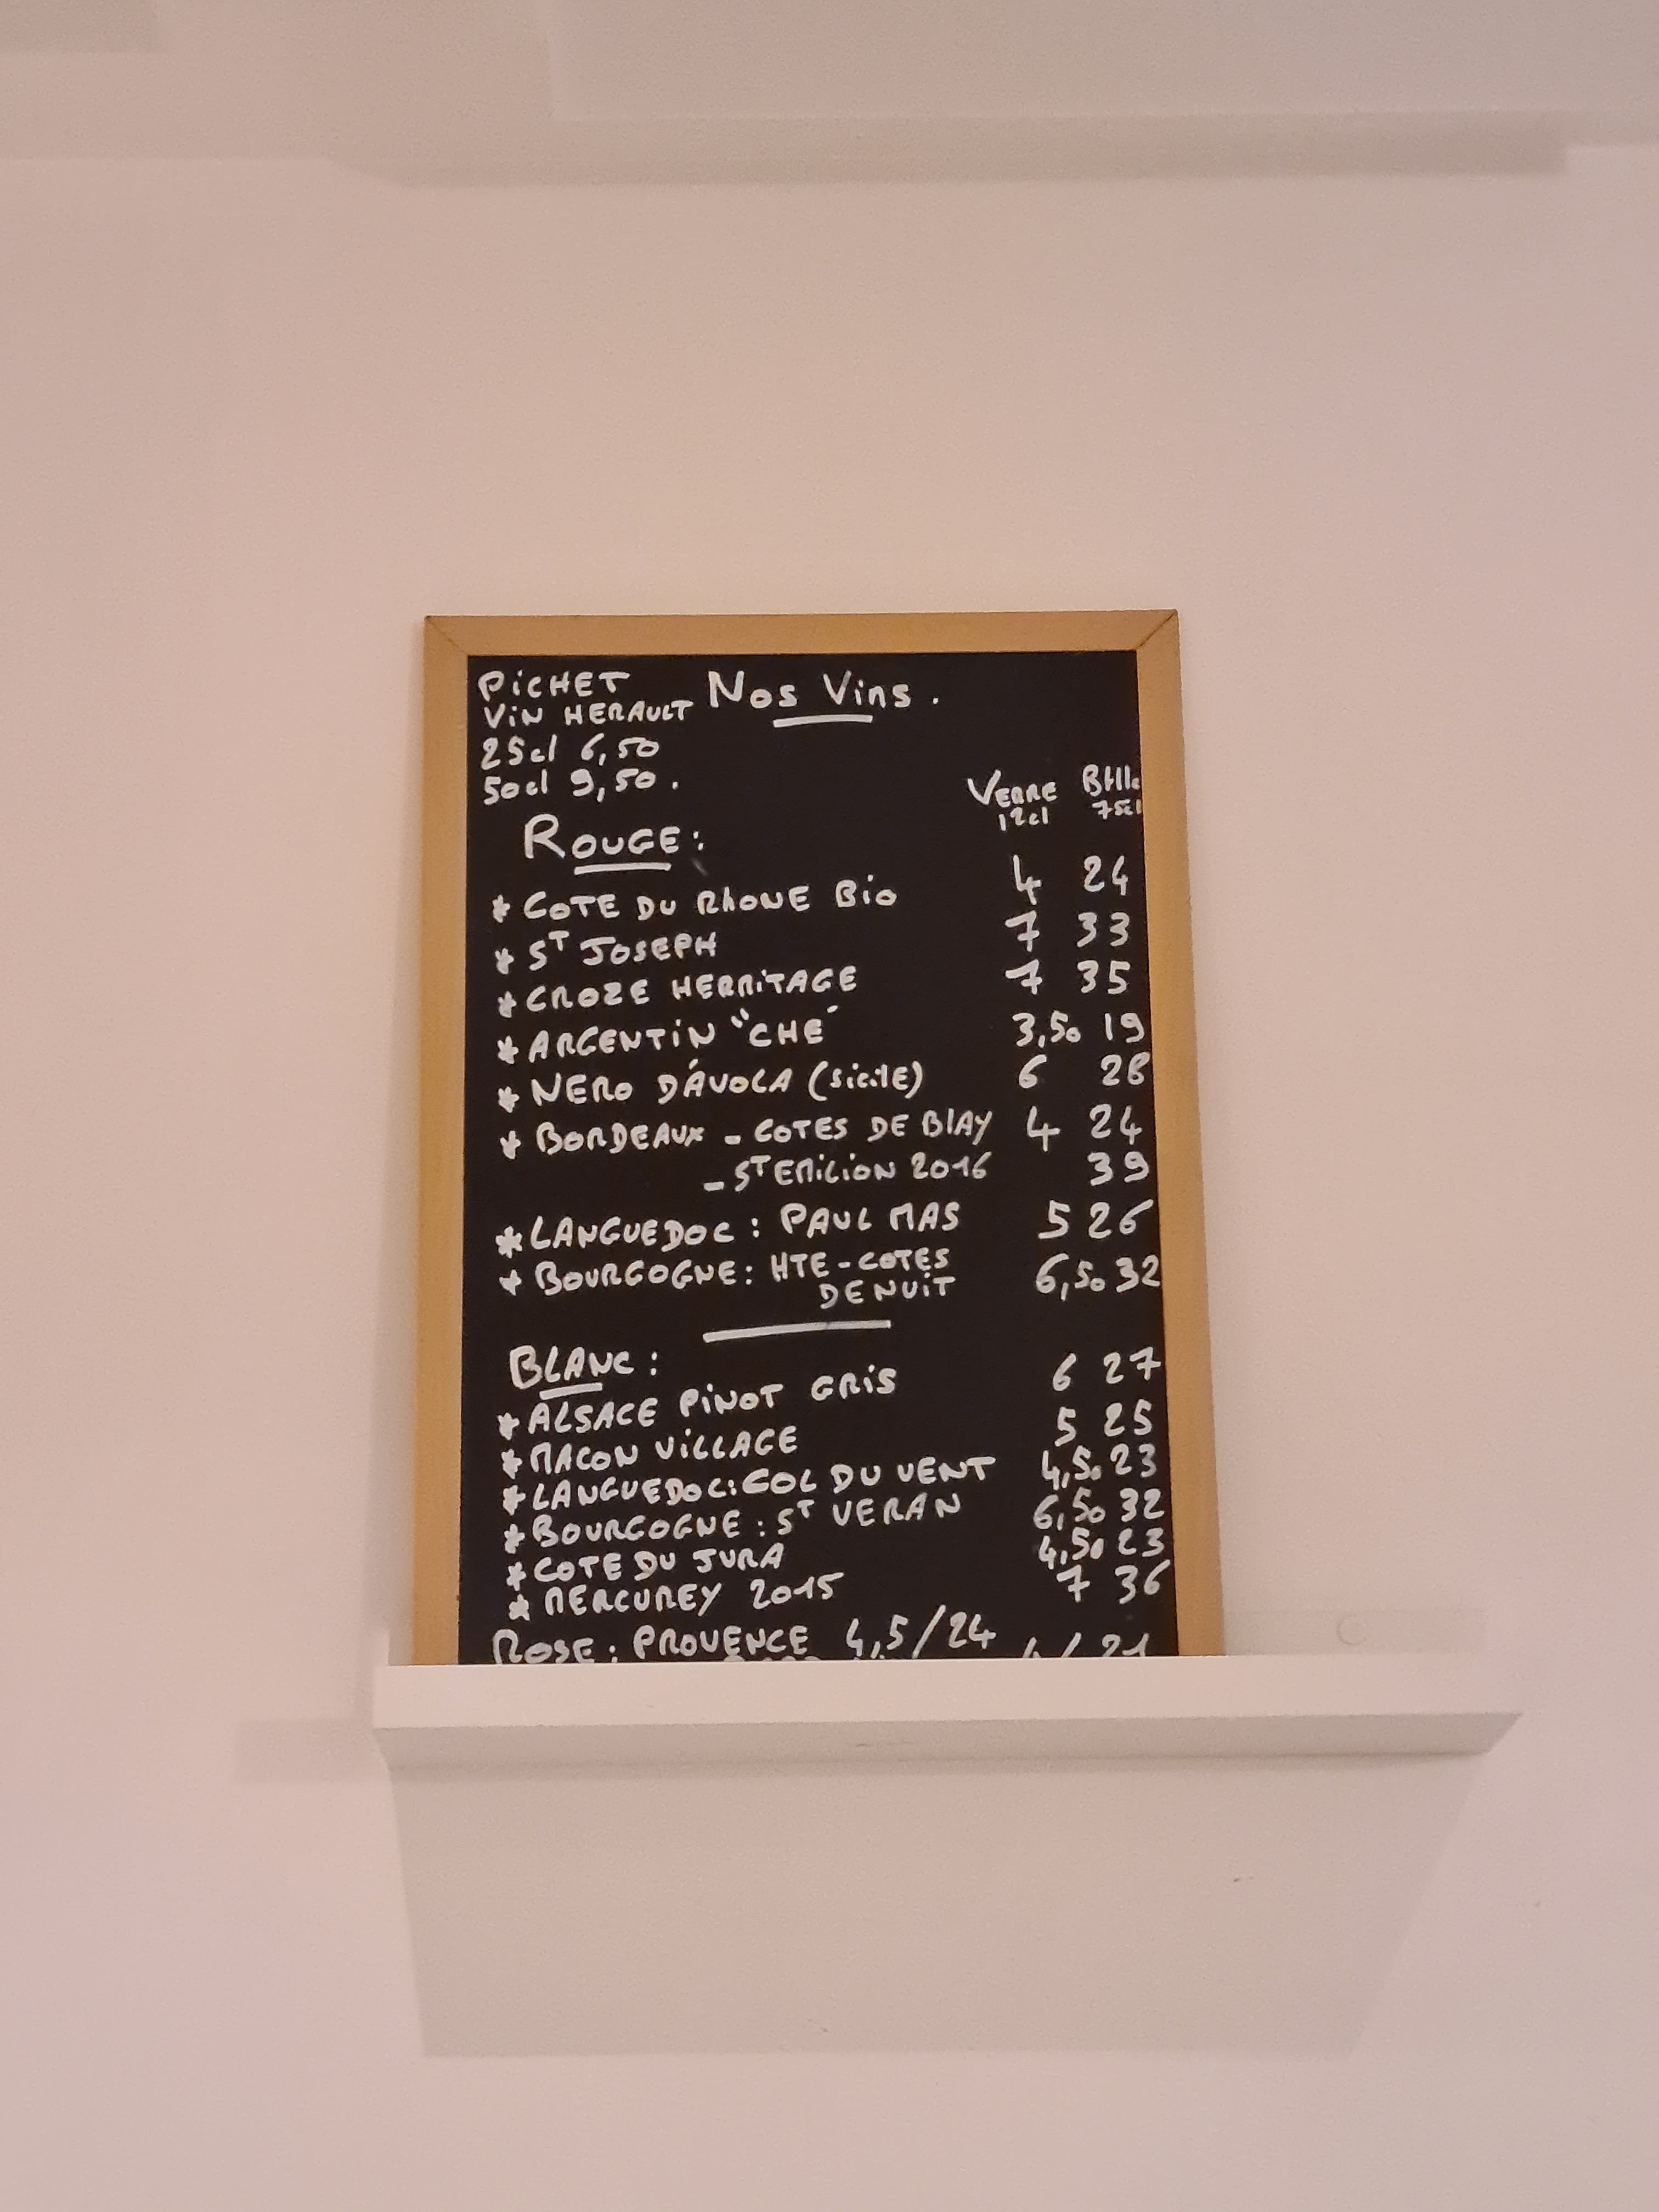 PiCHET Nos Vins.
ViN HERAULT
25cl 6,50
50cl 9,50.
VERRE Btlle
12cl 75cl
ROUGE:
* COTE DU RhONE Bio 4 24
* ST JOSEPH 7 33
* CROZE HERMiTAGE 7 35
* ARGENTiN "CHE" 3,50 19
* NERO D'AVOLA (sicilE) 6 28
* BORDEAUX - COTES DE BlAY 4 24
- ST EMiLiON 2016 39
* LANGUEDOC : PAUL MAS 5 26
* BOURGOGNE : HTE-COTES 6,50 32
DE NUiT
BLANC :
* ALSACE PiNOT GRiS 6 27
* MACON ViLLAGE 5 25
* LANGUEDOC : COL DU VENT 4,50 23
* BOURGOGNE : ST VERAN 6,50 32
* COTE DU JURA 4,50 23
* MERCUREY 2015 7 36
ROSE : PROVENCE 4,5/24
4/21